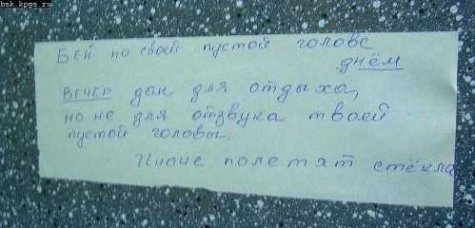 bsk.kpgs.ru
Бей по своей пустой голове
днём
вечер дан для отдыха,
но не для отзвука твоей
пустой головы.
Иначе полетят стёкла